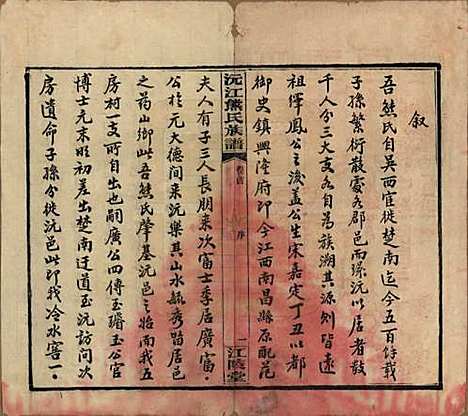 叙
吾熊氏自吴西宦徙楚南迄今五百馀载
子孫繁衍散處各郡邑而環沅以居者数
千人分三大支各自為族溯其源則皆遠
祖繹鳳公之後盖公生宋嘉定丁丑以都
御史鎮興隆府即今江西南昌縣原配范
沅江熊氏族譜
卷首
序
一
江陵堂
夫人有子三人長朋来次富士季居廣富
公於元大德間来沅樂其山水毓秀留居
之药山鄉此吾熊氏肇基沅邑之始南我五
房村一支所自出也嗣廣公四傳玉璿玉公官
博士元末明初差出楚南迂道玉沅訪問次
房遺命子孫分徙沅邑此即我冷水窖一